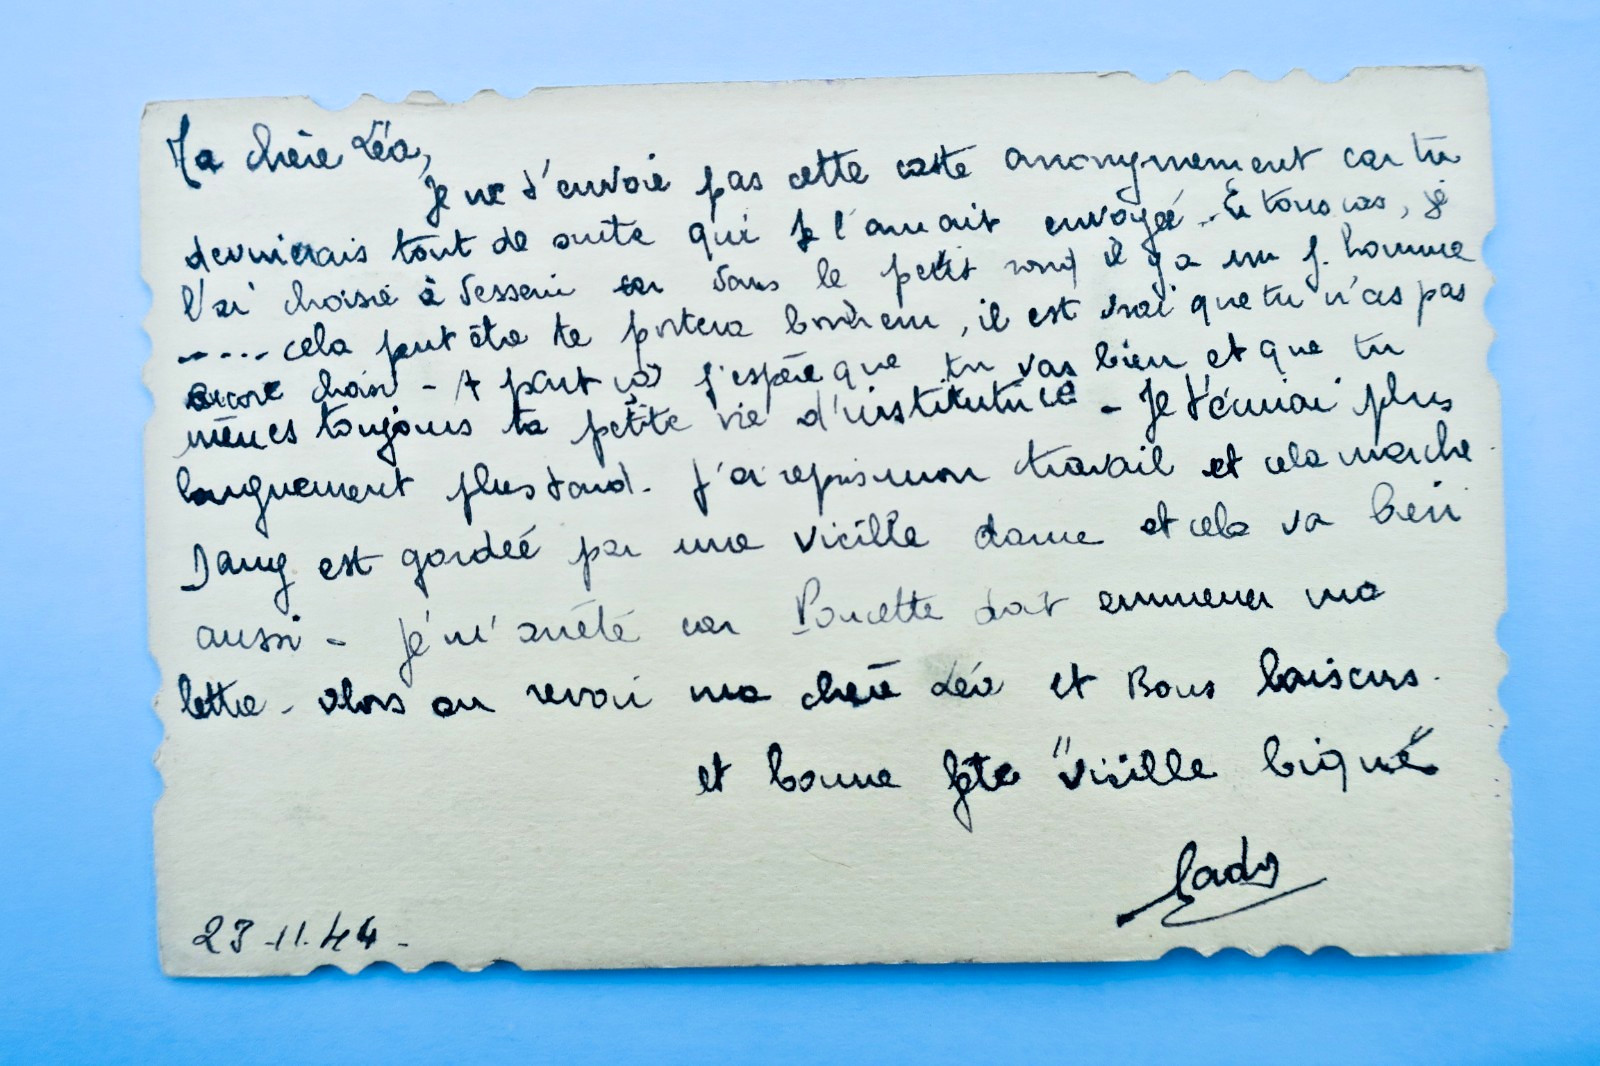 Ma chère Léa,
Je ne t'envoie pas cette carte anonymement car tu
devinerais tout de suite qui te l'aurait envoyé.. En tous cas, je
l'ai choisie à dessein car dans le petit rond il y a un j. homme
----- cela peut être te portera bonheur, il est vrai que tu n'as pas
encore choisi - A part ça j'espère que tu vas bien et que tu
mènes toujours ta petite vie d'institutrice - Je t'écrirai plus
longuement plus tard - J'ai repris mon travail et cela marche.
Dany est gardée par une vieille dame et cela va bien
aussi - Je m'arrête car Poucette doit emmener ma
lettre - alors au revoir ma chère Léa et Bons baisers.
et bonne fête "vieille bique"
23-11.44 -